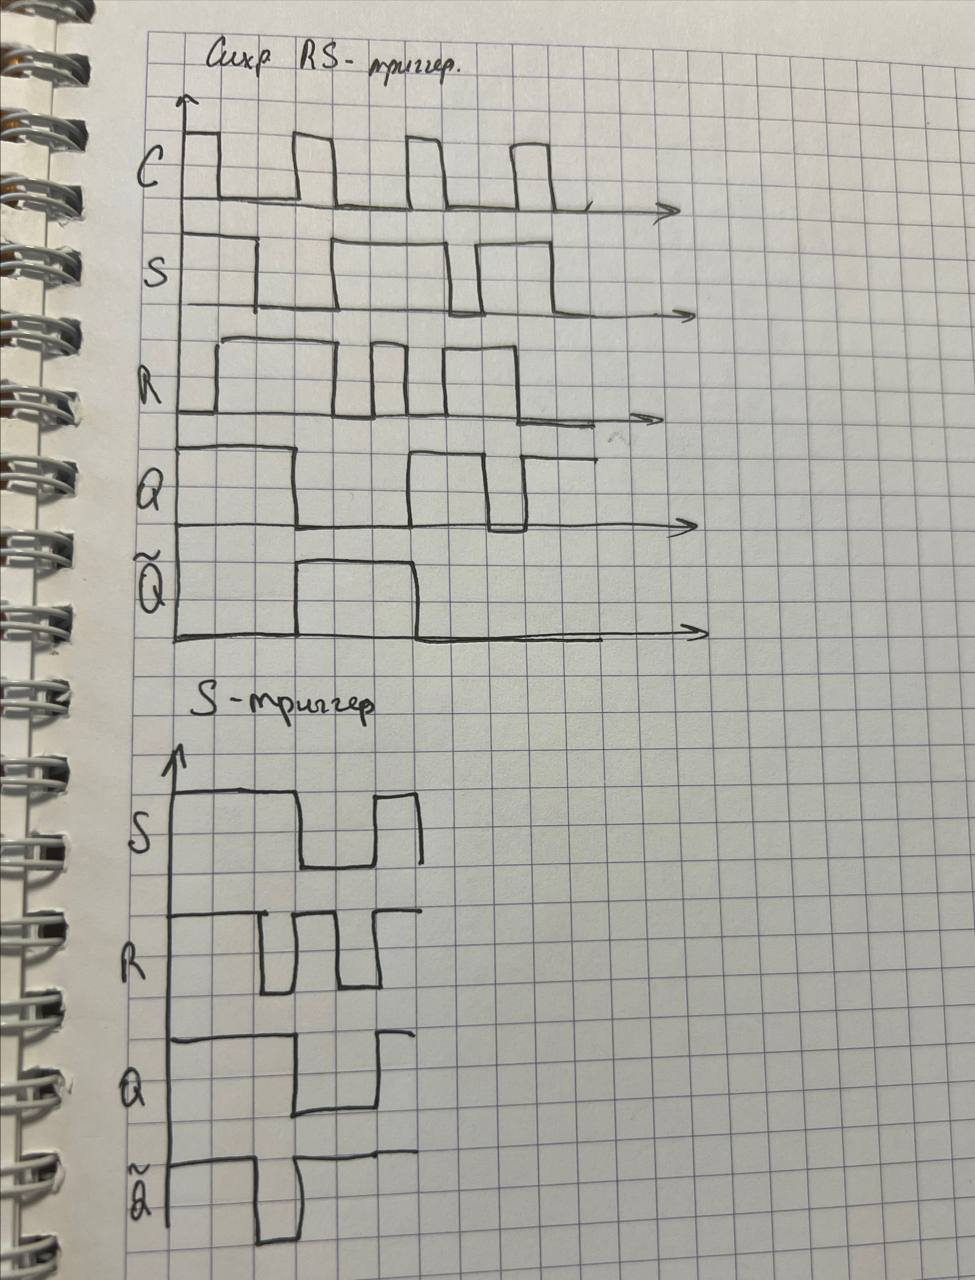 Синхр RS-триггер.
C
S
R
Q
Q̃
S-триггер
S
R
Q
Q̃